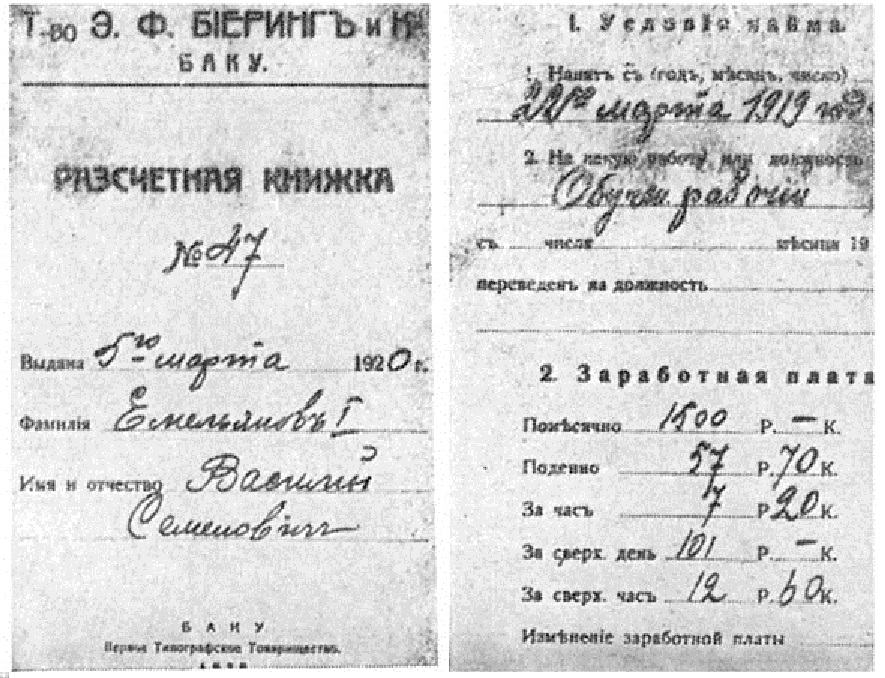 Т-во Э. Ф. БІЕРИНГЪ и Ко
БАКУ.
РАЗСЧЕТНАЯ КНИЖКА
№ 47
Выдана 5го марта 1920 г.
Фамилія Емельяновъ I
Имя и отчество Василій
Семеновичъ
БАКУ
Первое Типографское Товарищество.
1. Условія найма.
1. Нанятъ съ (годъ, мѣсяцъ, число)
22го марта 1919 года
2. На какую работу или должность
рабочій
съ числа мѣсяца 19
переведенъ на должность
2. Заработная плата
Помѣсячно 1500 Р. — К.
Поденно 57 Р. 70 К.
За часъ 7 Р. 20 К.
За сверх. день 101 Р. — К.
За сверх. часъ 12 Р. 60 К.
Измѣненіе заработной платы